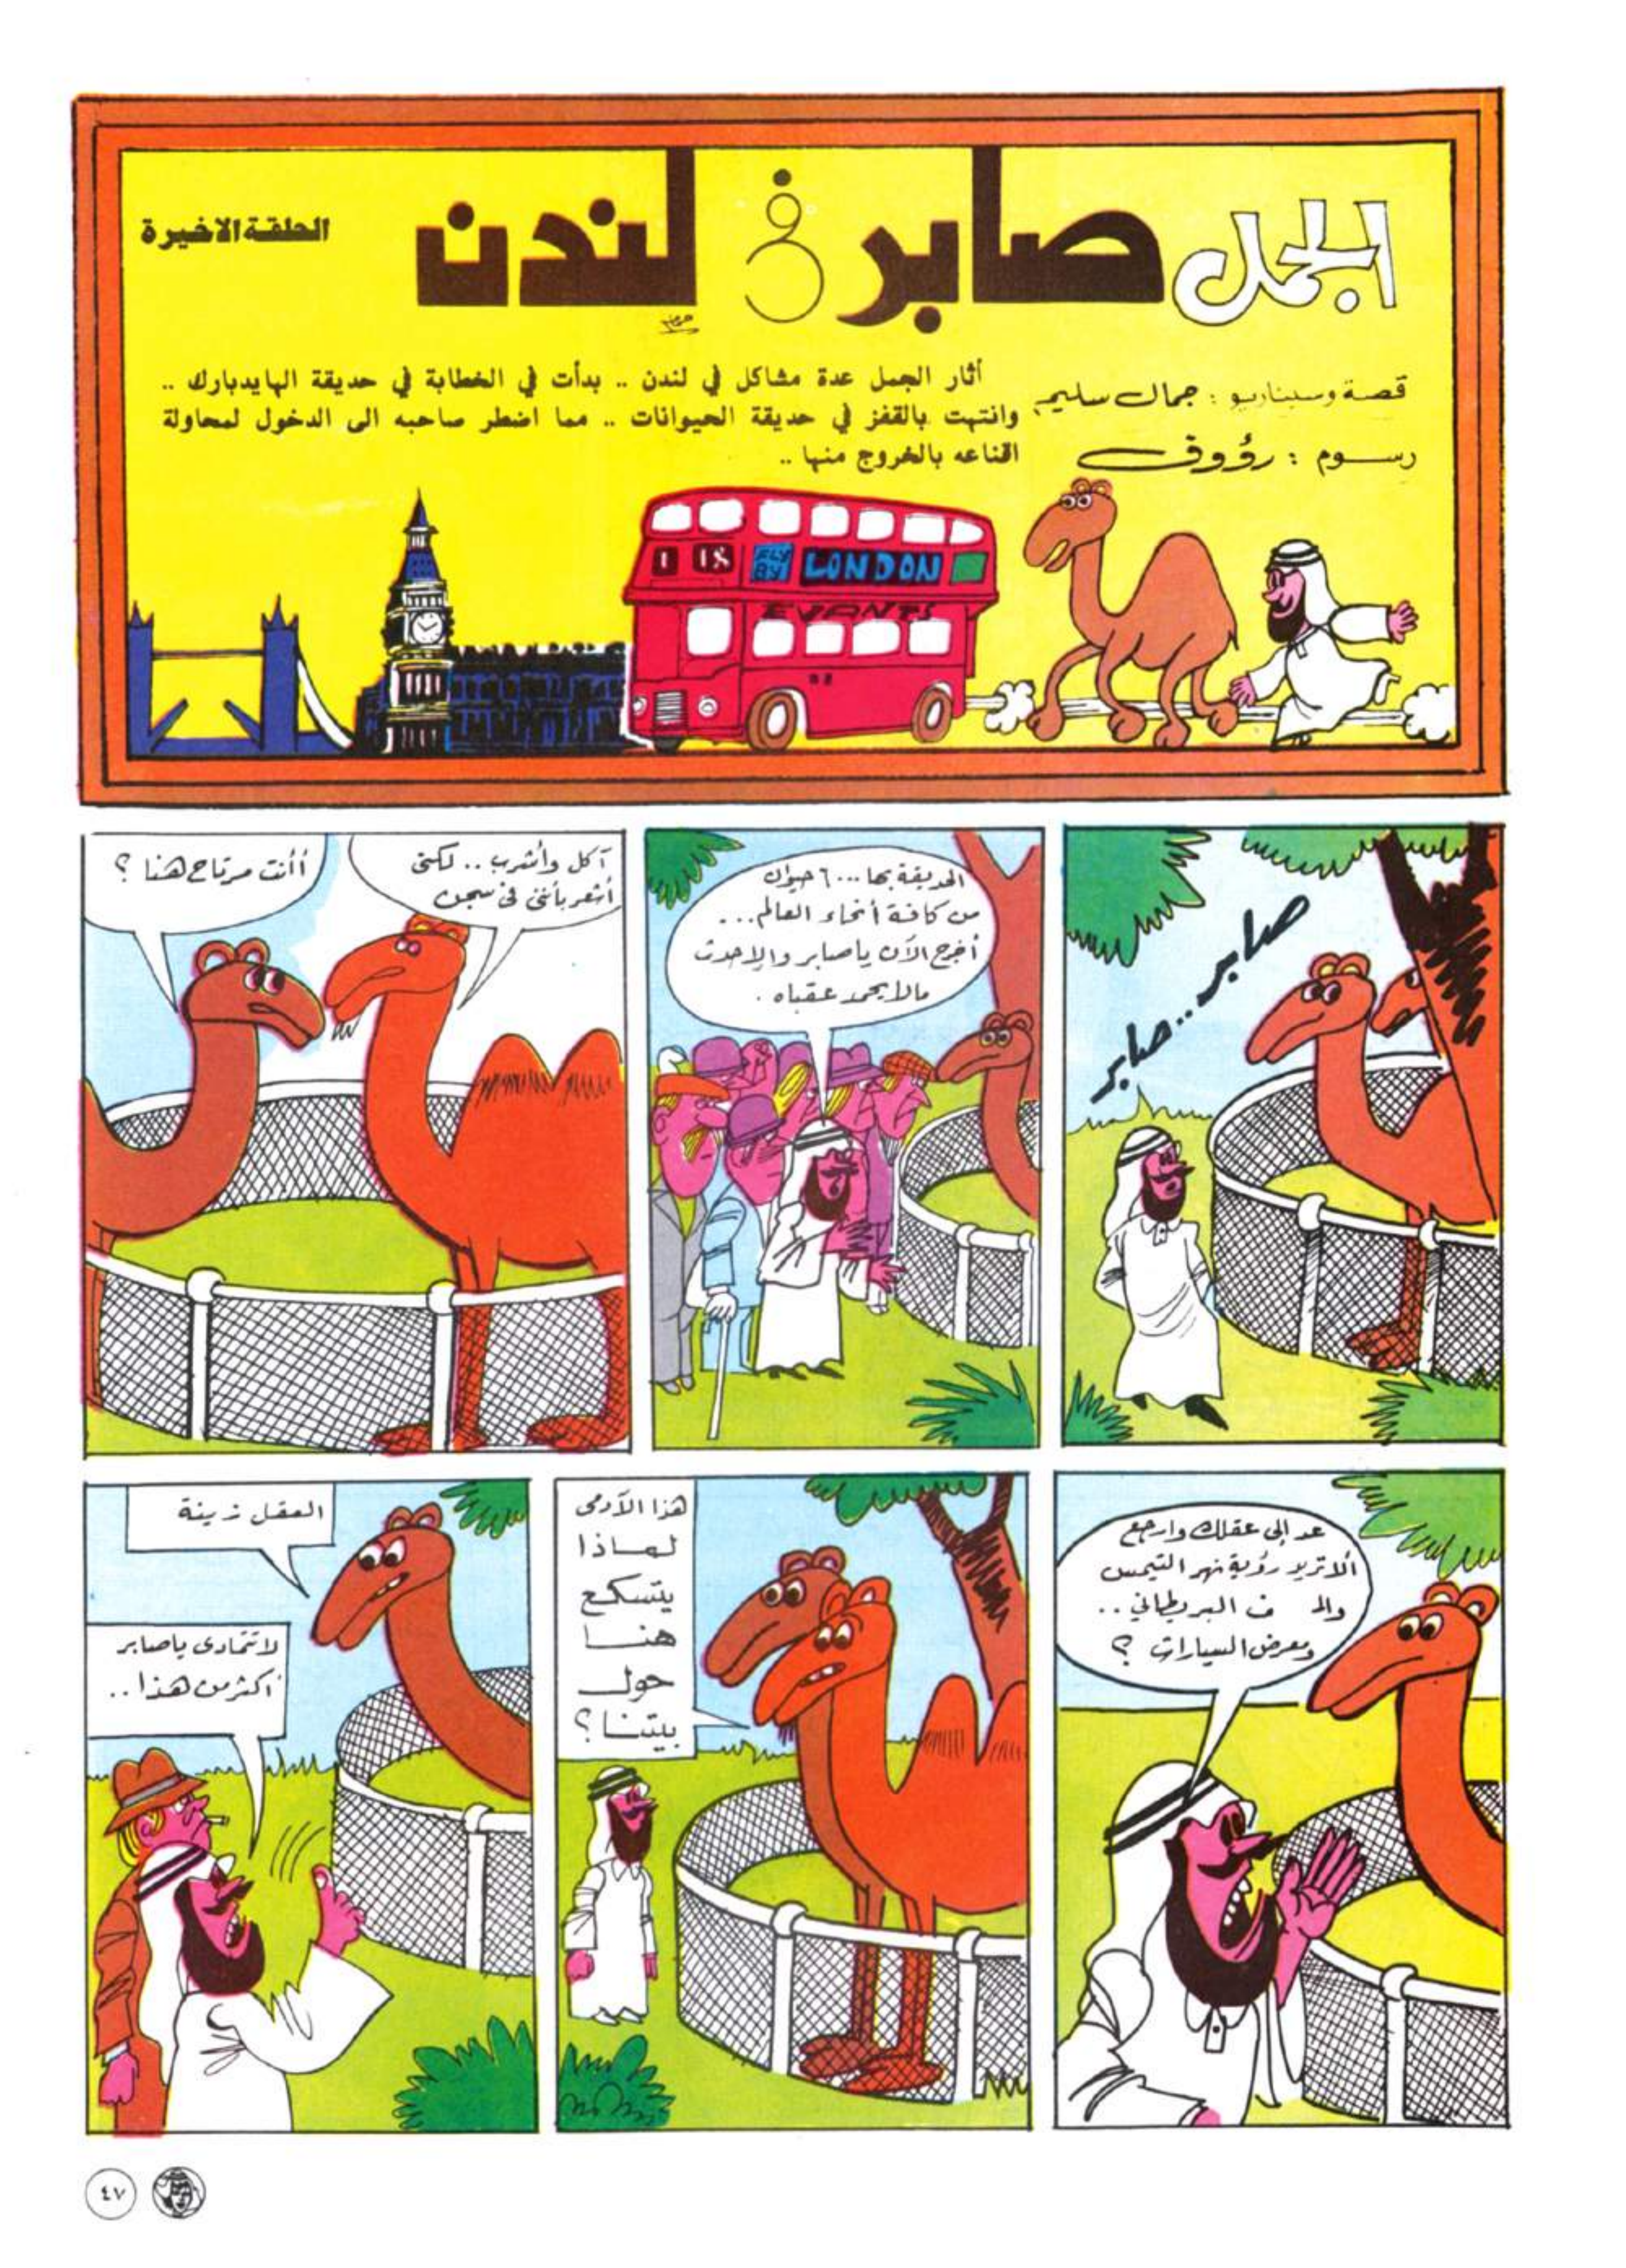 الجمل صابر في لندن
الحلقة الاخيرة
قصة وسيناريو : جمال سليم
رسوم : رؤوف
أثار الجمل عدة مشاكل في لندن .. بدأت في الخطابة في حديقة الهايدبارك ..
وانتهت بالقفز في حديقة الحيوانات .. مما اضطر صاحبه الى الدخول لمحاولة
اقناعه بالخروج منها ..
FLY
BY
LONDON
EVANTS
صابر .. صابر
الحديقة بها ٦٠٠٠ حيوان
من كافة أنحاء العالم ...
أخرج الآن يا صابر وإلا حدث
مالا يحمد عقباه .
آكل وأشرب .. لكني
أشعر بأنني في سجن
أأنت مرتاح هنا ؟
عد إلى عقلك وارجع
ألا تريد رؤية نهر التيمس
والـ ف البريطاني ..
ومعرض السيارات ؟
هذا الآدمى
لماذا
يتسكع
هنا
حول
بيتنا ؟
العقل زينة
لا تتمادى يا صابر
أكثر من هذا ..
٤٧